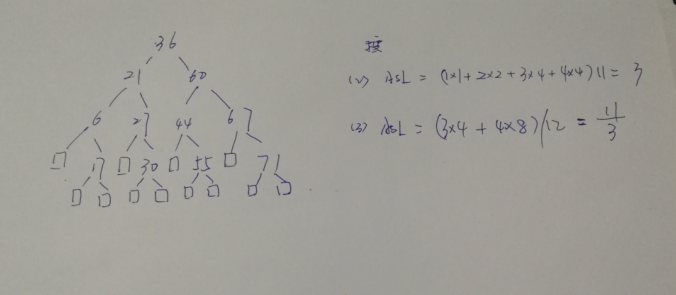 36
21 60
6 27 44 67
17 30 55 71
(2) ASL = (1×1+2×2+3×4+4×4)/11 = 3
(3) ASL = (3×4+4×8)/12 = 11/3